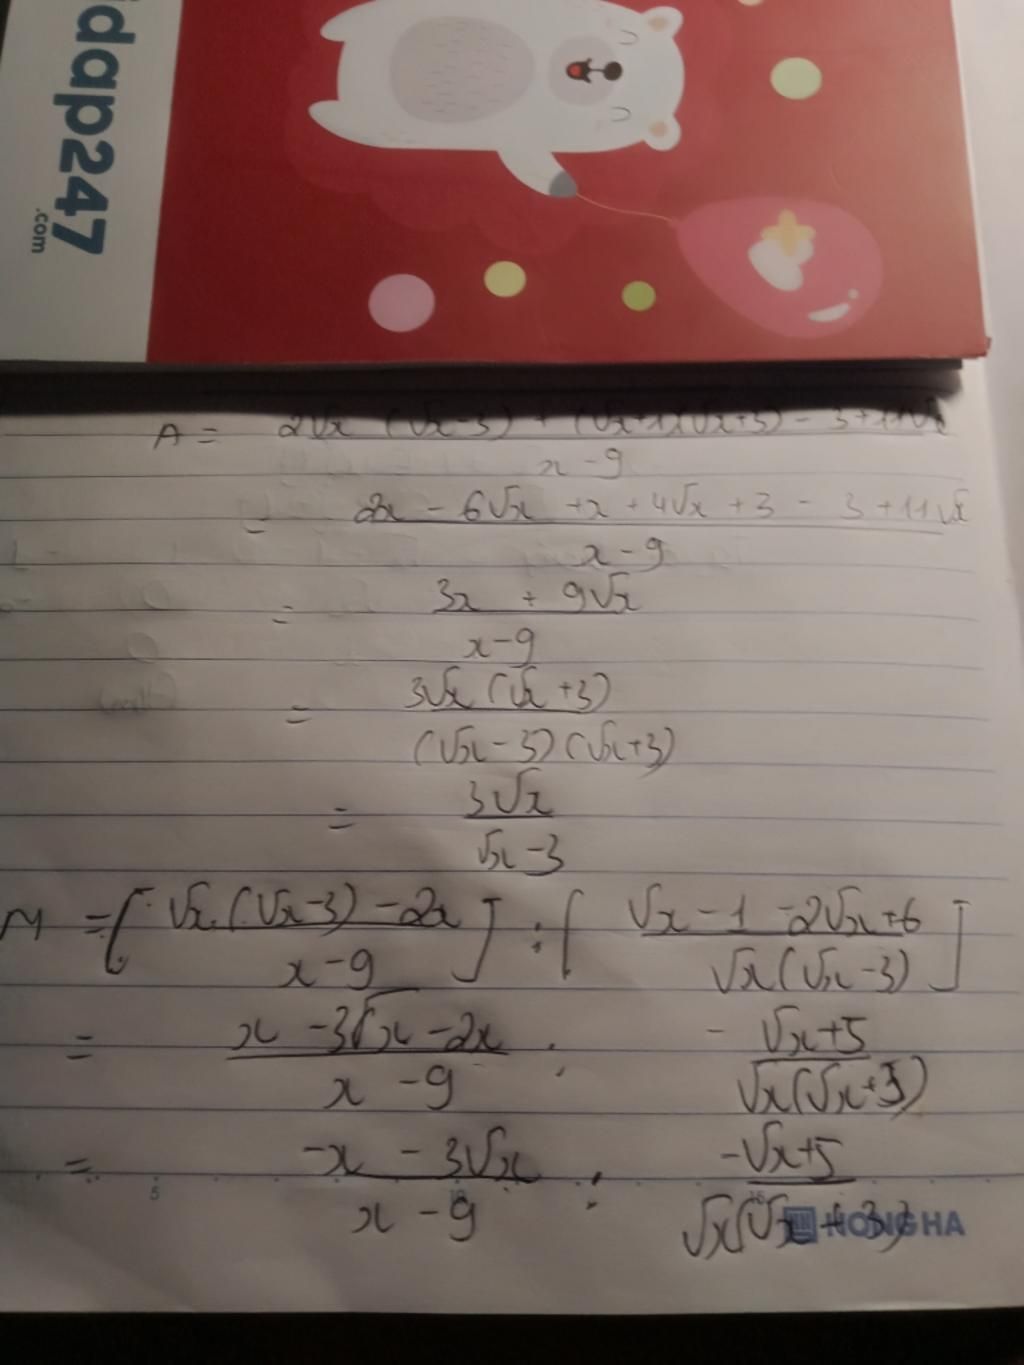 idap247
.com
A = 2√x (√x-3) + (√x+1)(√x+3) - 3+11√x
x - 9
= 2x - 6√x + x + 4√x + 3 - 3 + 11√x
x - 9
= 3x + 9√x
x - 9
= 3√x (√x + 3)
(√x - 3) (√x+3)
= 3√x
√x - 3
M = [ √x.(√x-3) - 2x ] : [ √x - 1 - 2√x + 6 ]
x - 9 √x(√x - 3)
= x - 3√x - 2x : - √x+5
x - 9 √x(√x+3)
= -x - 3√x : -√x+5
5 10 15
x - 9 √x(√x + 3)
HONG HA